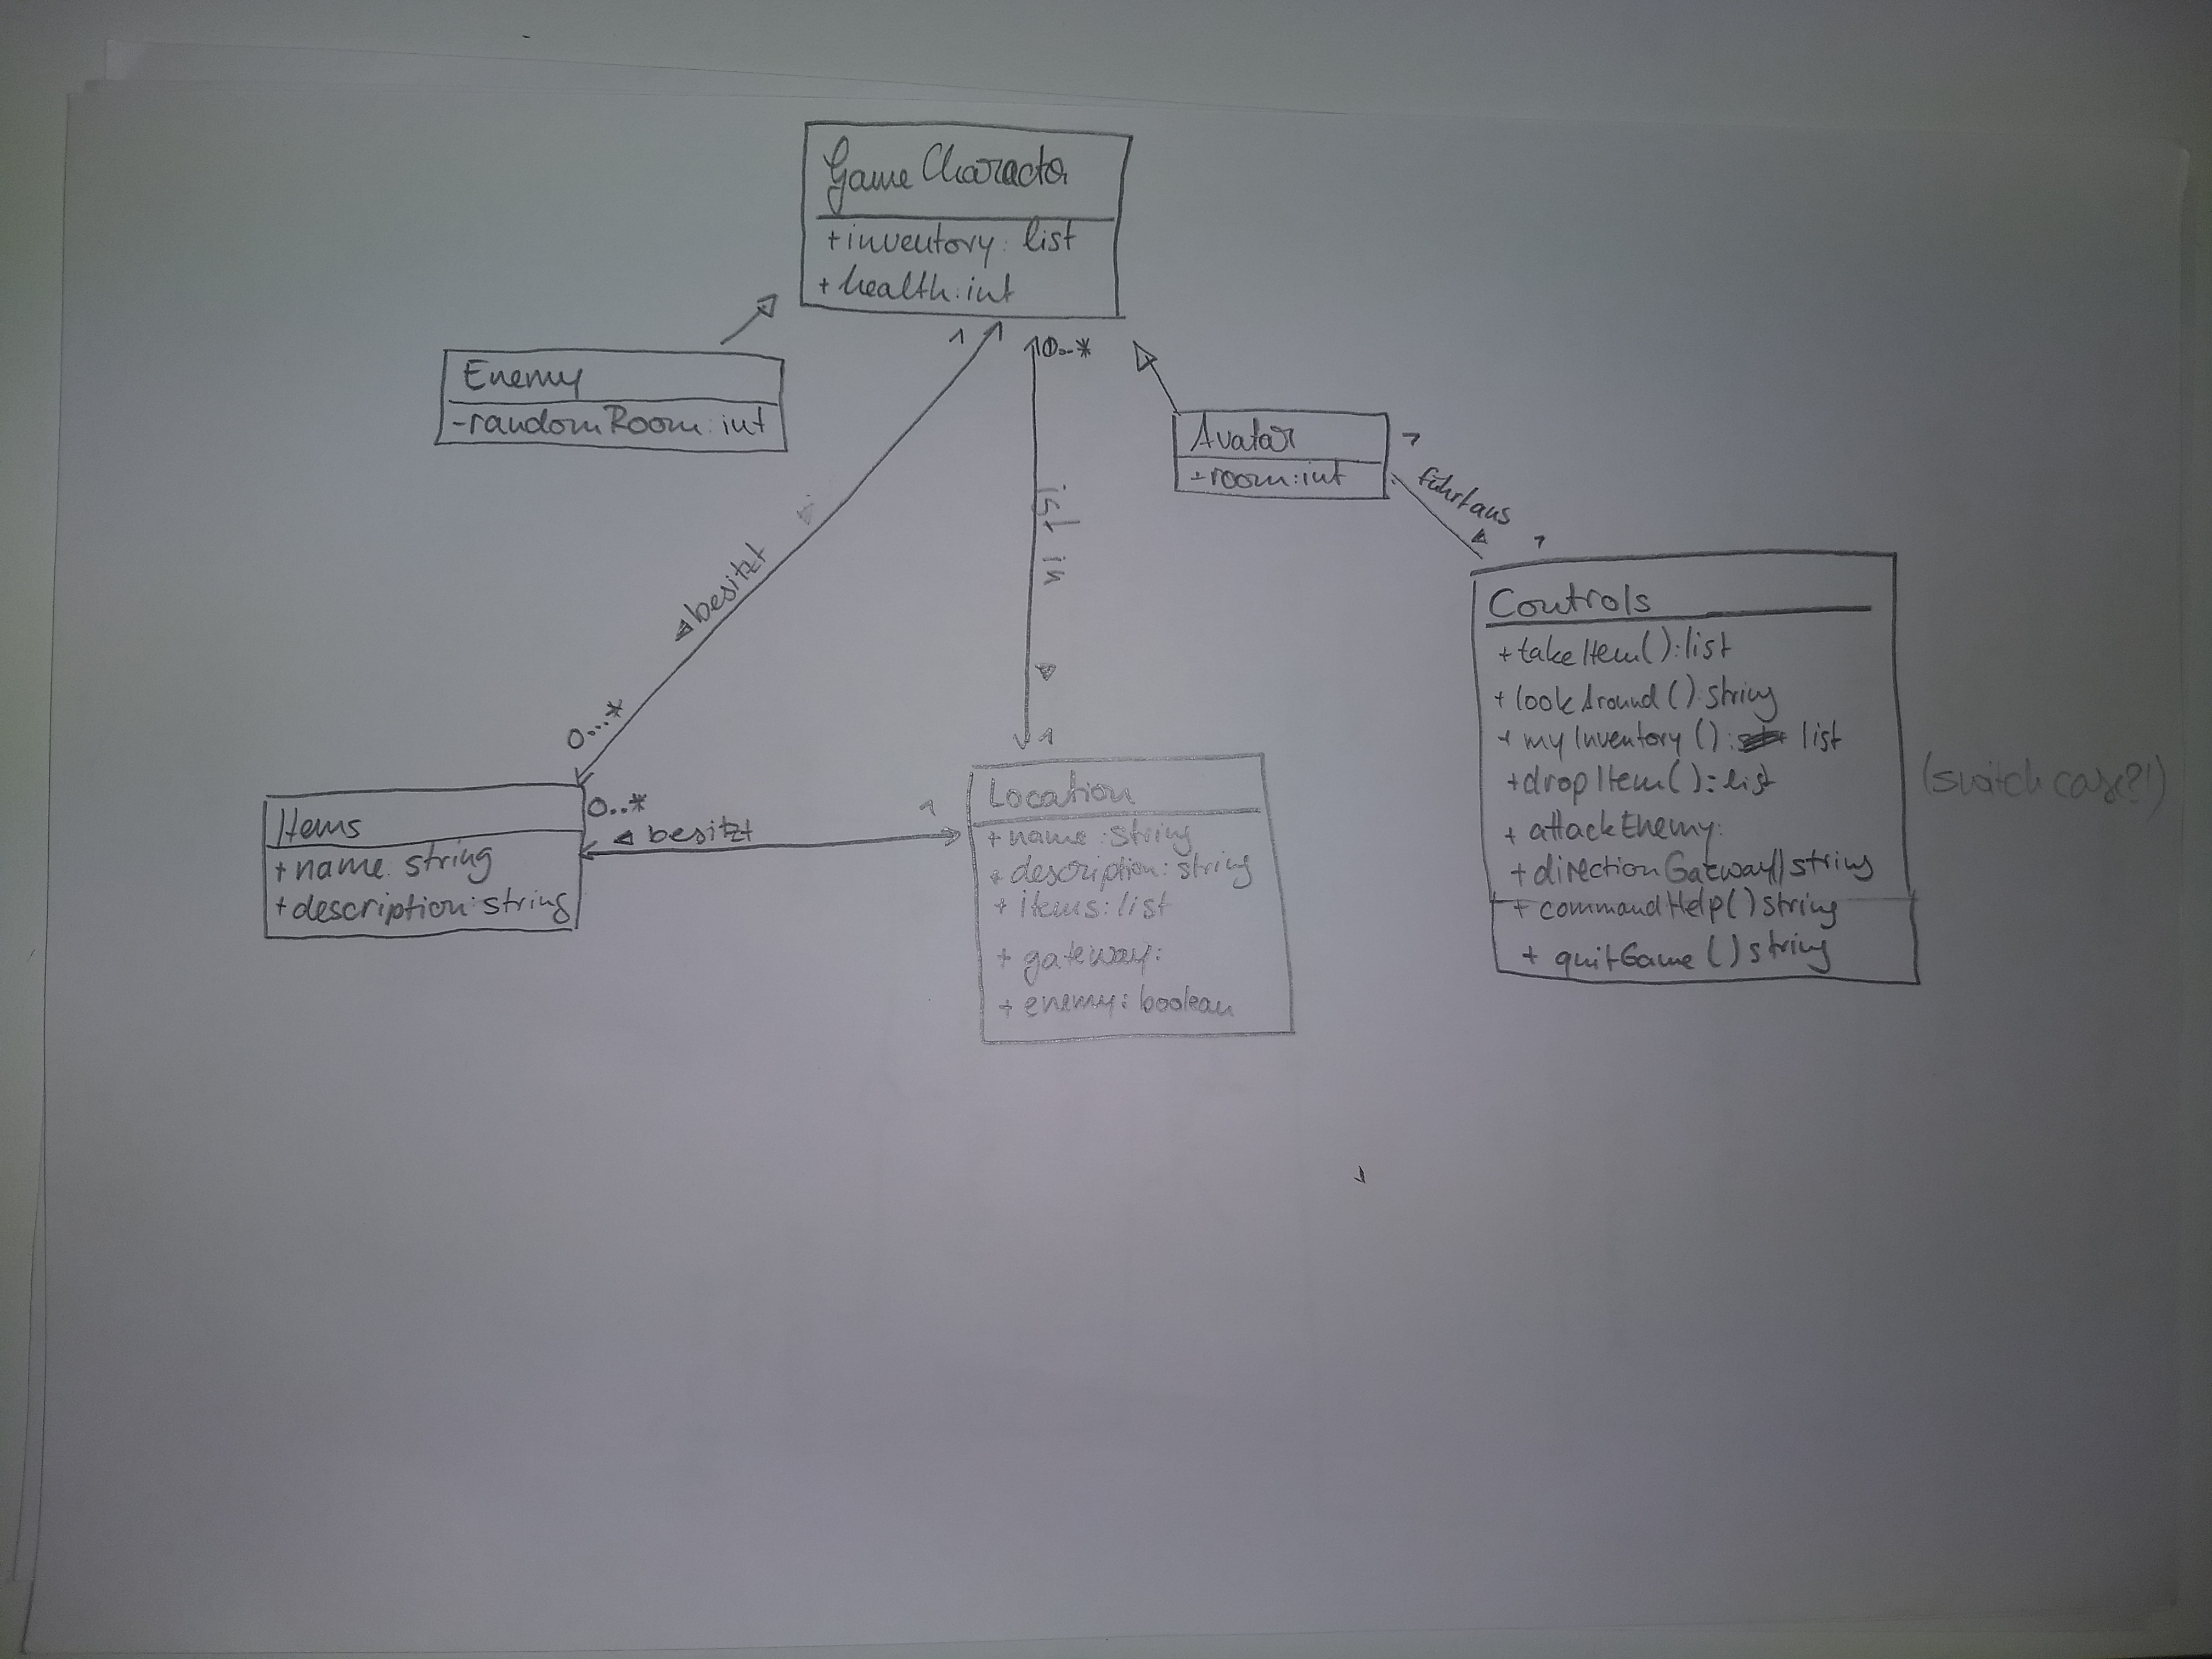 Game Character
+inventory: list
+ health: int
1
0..*
Enemy
-randomRoom: int
Avatar
+room: int
1
führt aus
1
besitzt
ist in
0...*
1
Controls
+takeItem(): list
+ lookAround(): string
+ myInventory(): list
+dropItem(): list
+ attackEnemy:
+ directionGateway() string
+ commandHelp() string
+ quitGame () string
(switch case?!)
Items
+ name: string
+ description: string
0..*
besitzt
1
Location
+ name: string
+ description: string
+ items: list
+ gateway:
+ enemy: boolean